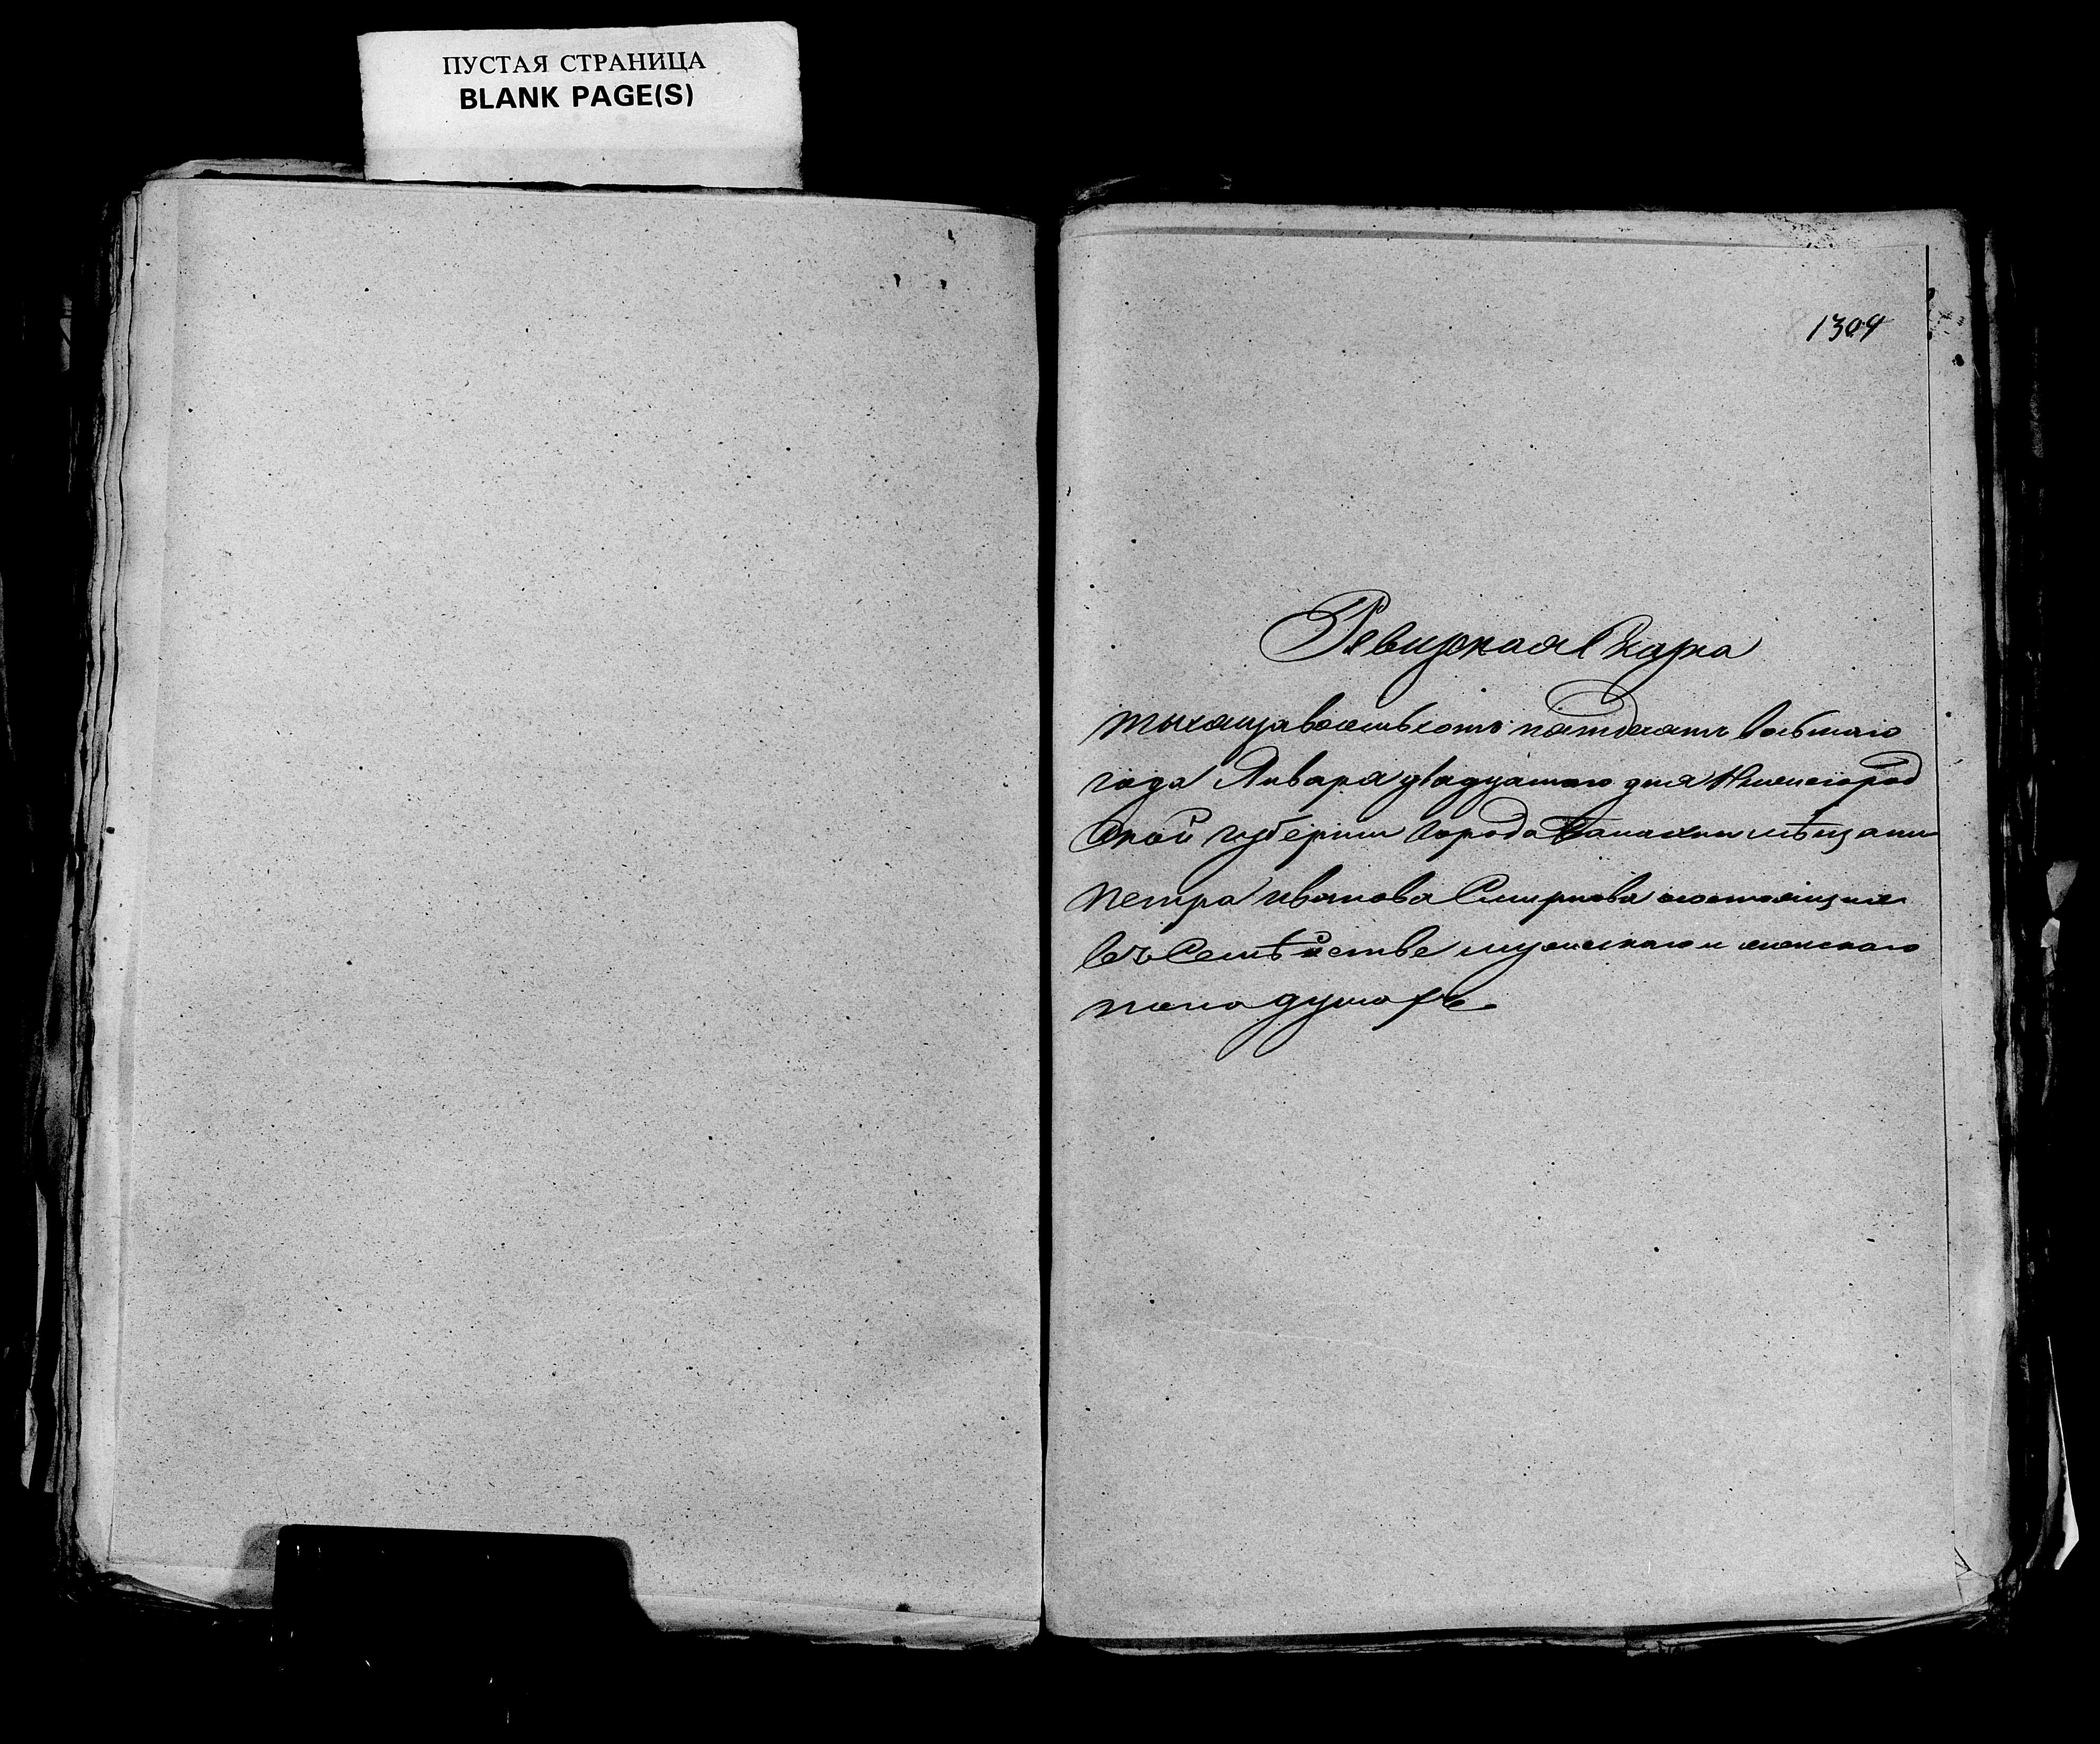 ПУСТАЯ СТРАНИЦА
BLANK PAGE(S)
1304
Ревизская Скаска
тысяща восемьсотъ пятдесятъ восьмаго
года Января двадцатаго дня Нижегород
ской губернии города Балахны мѣщани
Петра Иванова Смирнова состоящие
въ Семѣйстве мужескаго и женскаго
пола душахъ